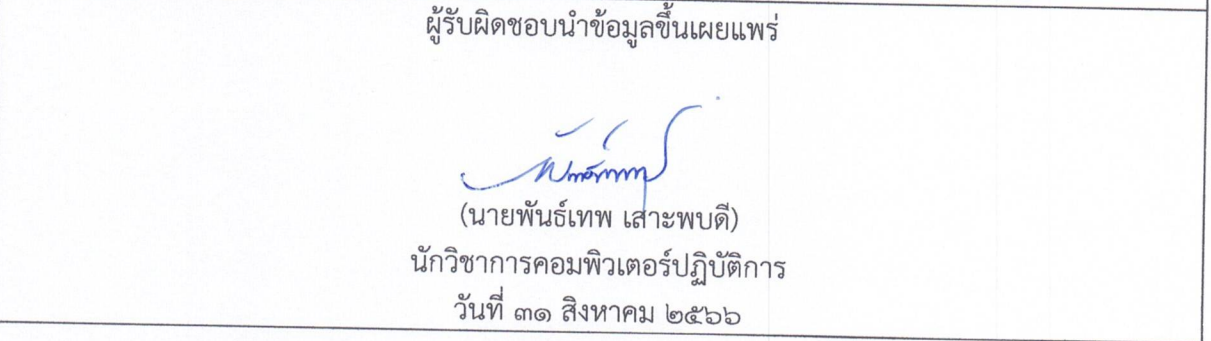 ผู้รับผิดชอบนำข้อมูลขึ้นเผยแพร่
(นายพันธ์เทพ เสาะพบดี)
นักวิชาการคอมพิวเตอร์ปฏิบัติการ
วันที่ ๓๑ สิงหาคม ๒๕๖๖